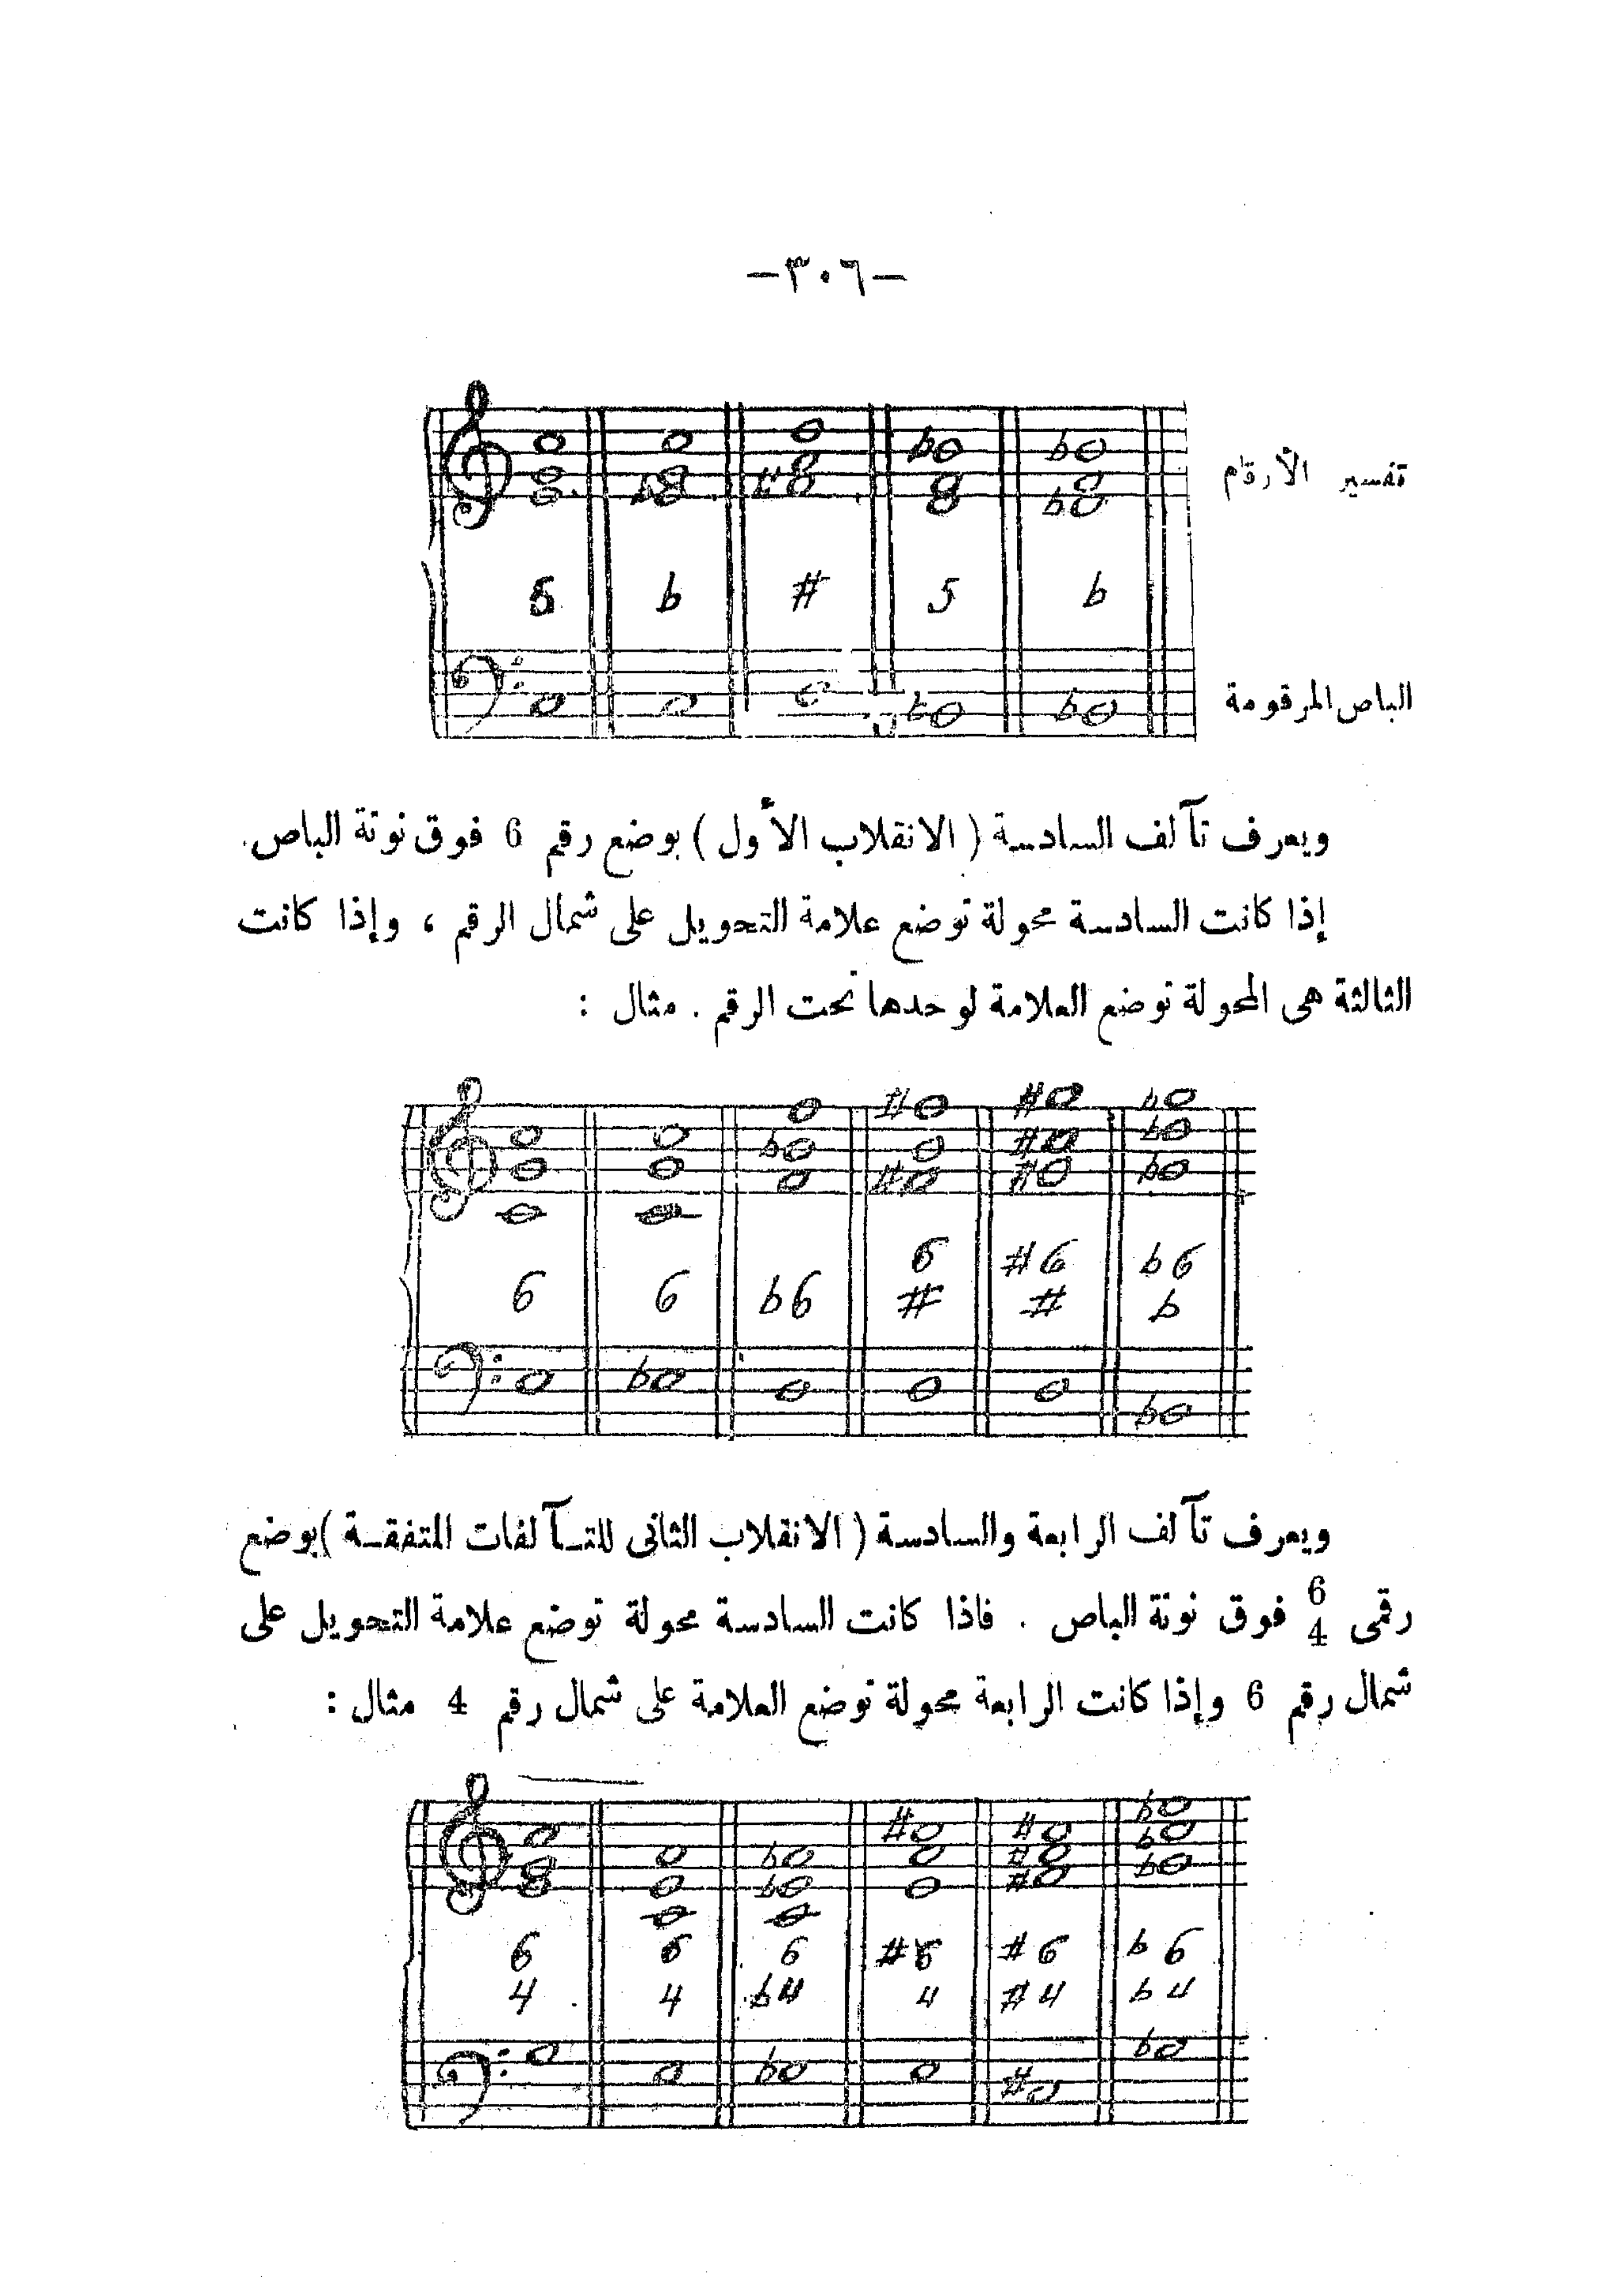 -٣٠٦-
تفسير الأرقام
5 b # 5 b
الباص المرقومة
ويعرف تآلف السادسة ( الانقلاب الأول ) بوضع رقم 6 فوق نوتة الباص.
إذا كانت السادسة محولة توضع علامة التحويل على شمال الرقم ، وإذا كانت
الثالثة هى المحولة توضع العلامة لوحدها تحت الرقم . مثال :
6 #6 b6
6 6 b6 # # b
ويعرف تآلف الرابعة والسادسة ( الانقلاب الثانى للتـآلفات المتفقـة ) بوضع
رقمى 6 4 فوق نوتة الباص . فاذا كانت السادسة محولة توضع علامة التحويل على
شمال رقم 6 وإذا كانت الرابعة محولة توضع العلامة على شمال رقم 4 مثال :
6 6 6 #6 #6 b6
4 4 b4 4 #4 b4